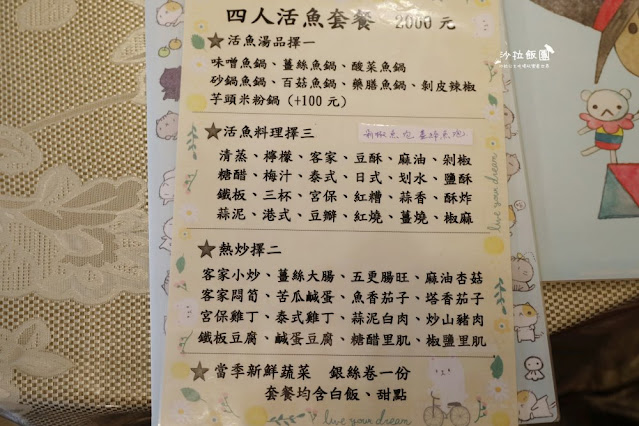 四人活魚套餐 2000 元
★活魚湯品擇一
味噌魚鍋、薑絲魚鍋、酸菜魚鍋
砂鍋魚鍋、百菇魚鍋、藥膳魚鍋、剝皮辣椒
芋頭米粉鍋(+100元)
★活魚料理擇三
清蒸、檸檬、客家、豆酥、麻油、剁椒
糖醋、梅汁、泰式、日式、划水、鹽酥
鐵板、三杯、宮保、紅糟、蒜香、酥炸
蒜泥、港式、豆瓣、紅燒、薑燒、椒麻
★熱炒擇二
客家小炒、薑絲大腸、五更腸旺、麻油杏菇
客家悶筍、苦瓜鹹蛋、魚香茄子、塔香茄子
宮保雞丁、泰式雞丁、蒜泥白肉、炒山豬肉
鐵板豆腐、鹹蛋豆腐、糖醋里肌、椒鹽里肌
★當季新鮮蔬菜 銀絲卷一份
套餐均含白飯、甜點
live your dream
live your dream
沙拉飯團